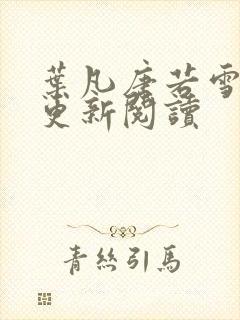 葉凡唐若雪
更新閱讀
青絲引馬